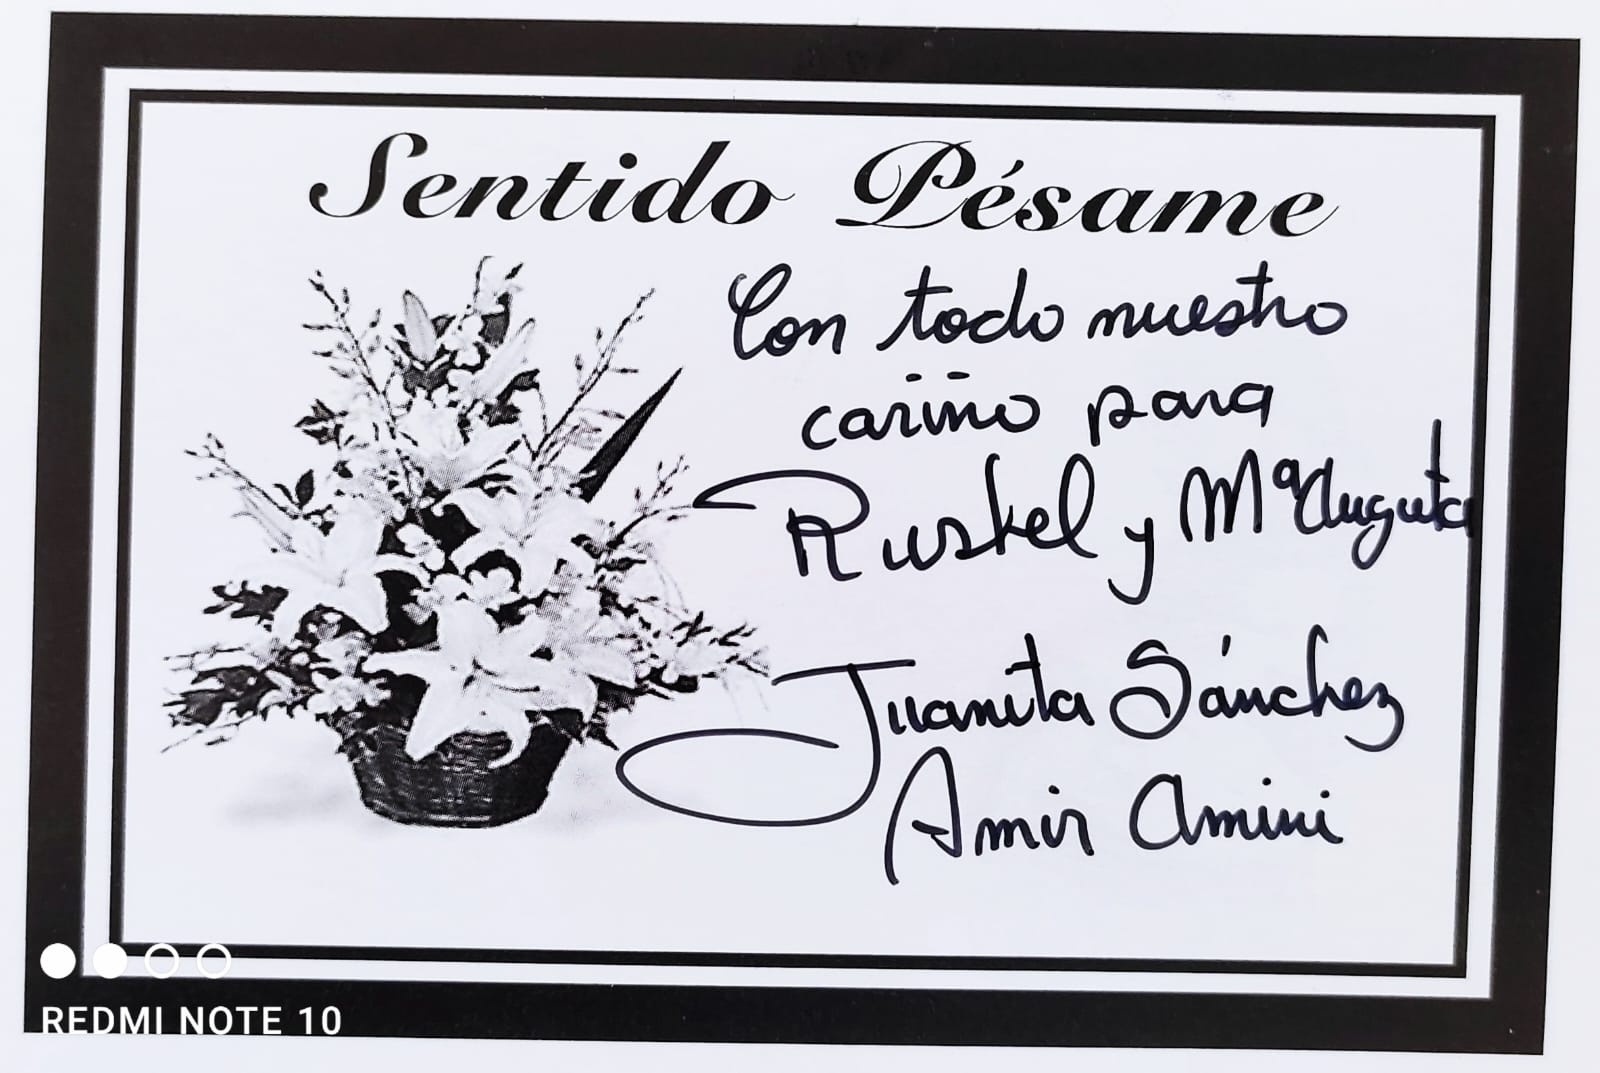 Sentido Pésame
Con todo nuestro
cariño para
Ruskel y Mª Augusta
Juanita Sánchez
Amir Amini
REDMI NOTE 10